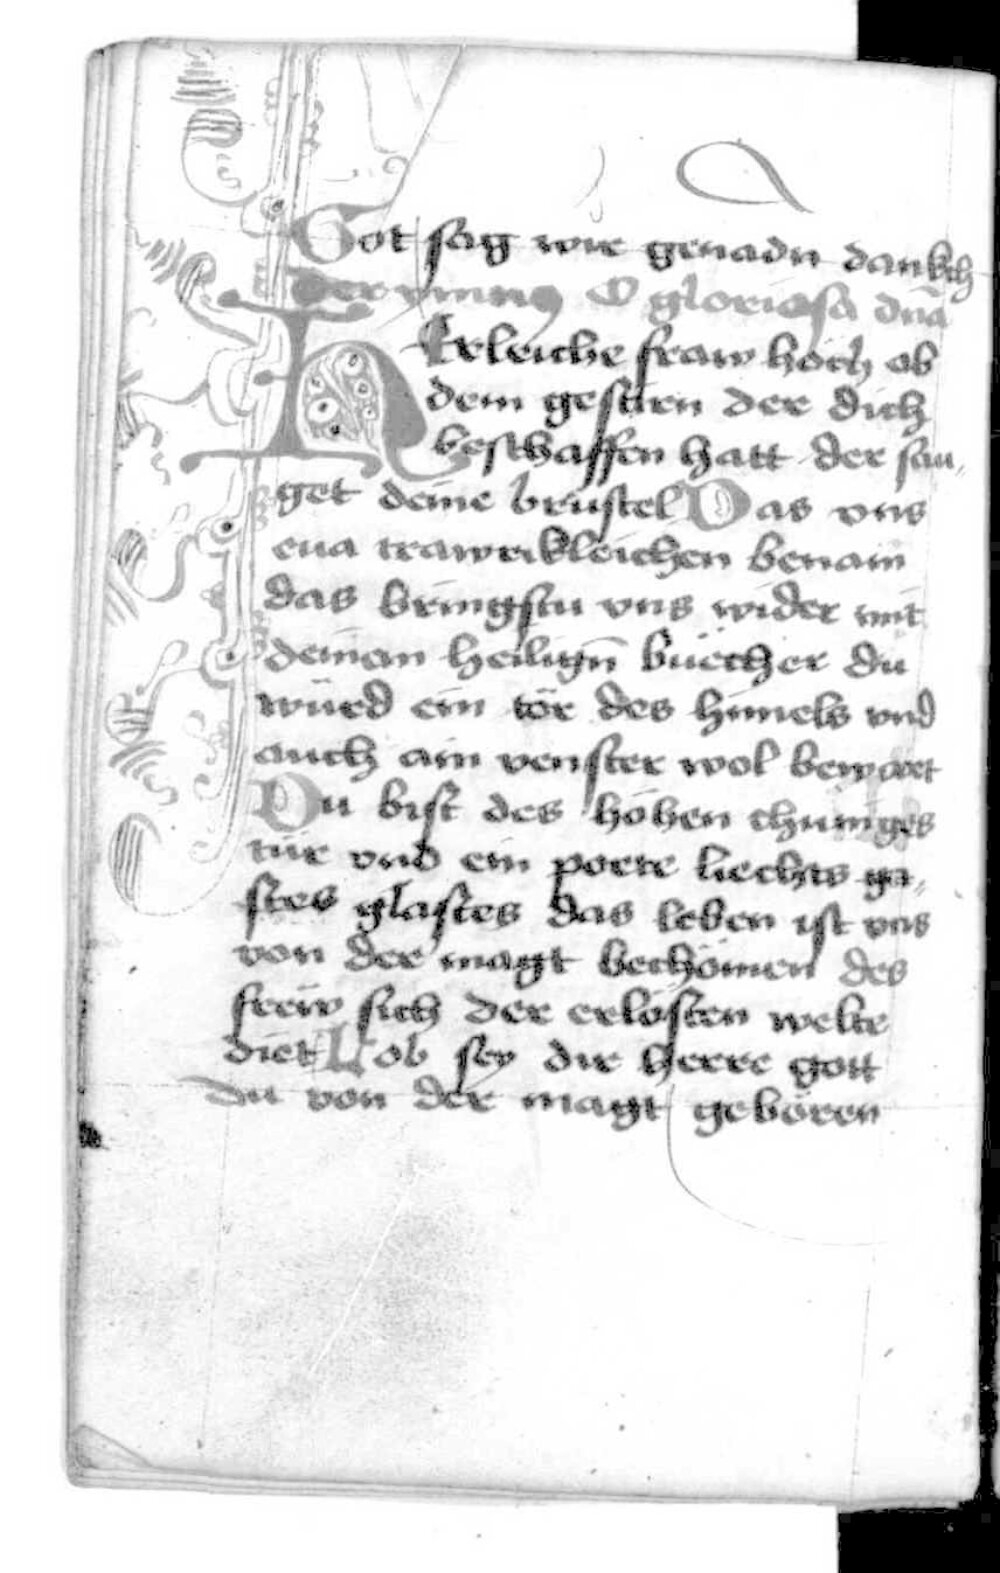 Got sag wir genadn dankch
Der ymnus O gloriosa dn̄a
Erleiche fraw hoch ob
dem gestiren der dich
beschaffen hatt der sau,
get deine brüstel Das vns
eua trawrikleichen benam
das bringstu vns wider mit
deinem heilign̄ büecher du
würd ein tör des himels vnd
auch ain venster wol bewart
Du bist des höhen chuniges
tür vnd ein porte liechts ga,
stes glastes das leben ist vns
von der magt bechömen des
frew sich der erlösten welte
diet Lob sey dir herre gott
du von der magt gebören